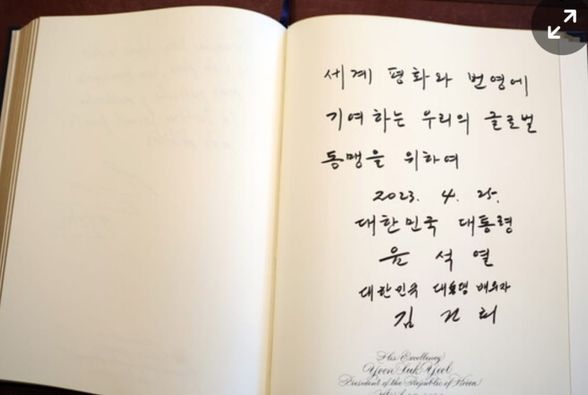 세계 평화와 번영에
기여하는 우리의 글로벌
동맹을 위하여
2023. 4. 25.
대한민국 대통령
윤 석 열
대한민국 대통령 배우자
김 건 희
His Excellency
Yoon Suk Yeol
President of the Republic of Korea